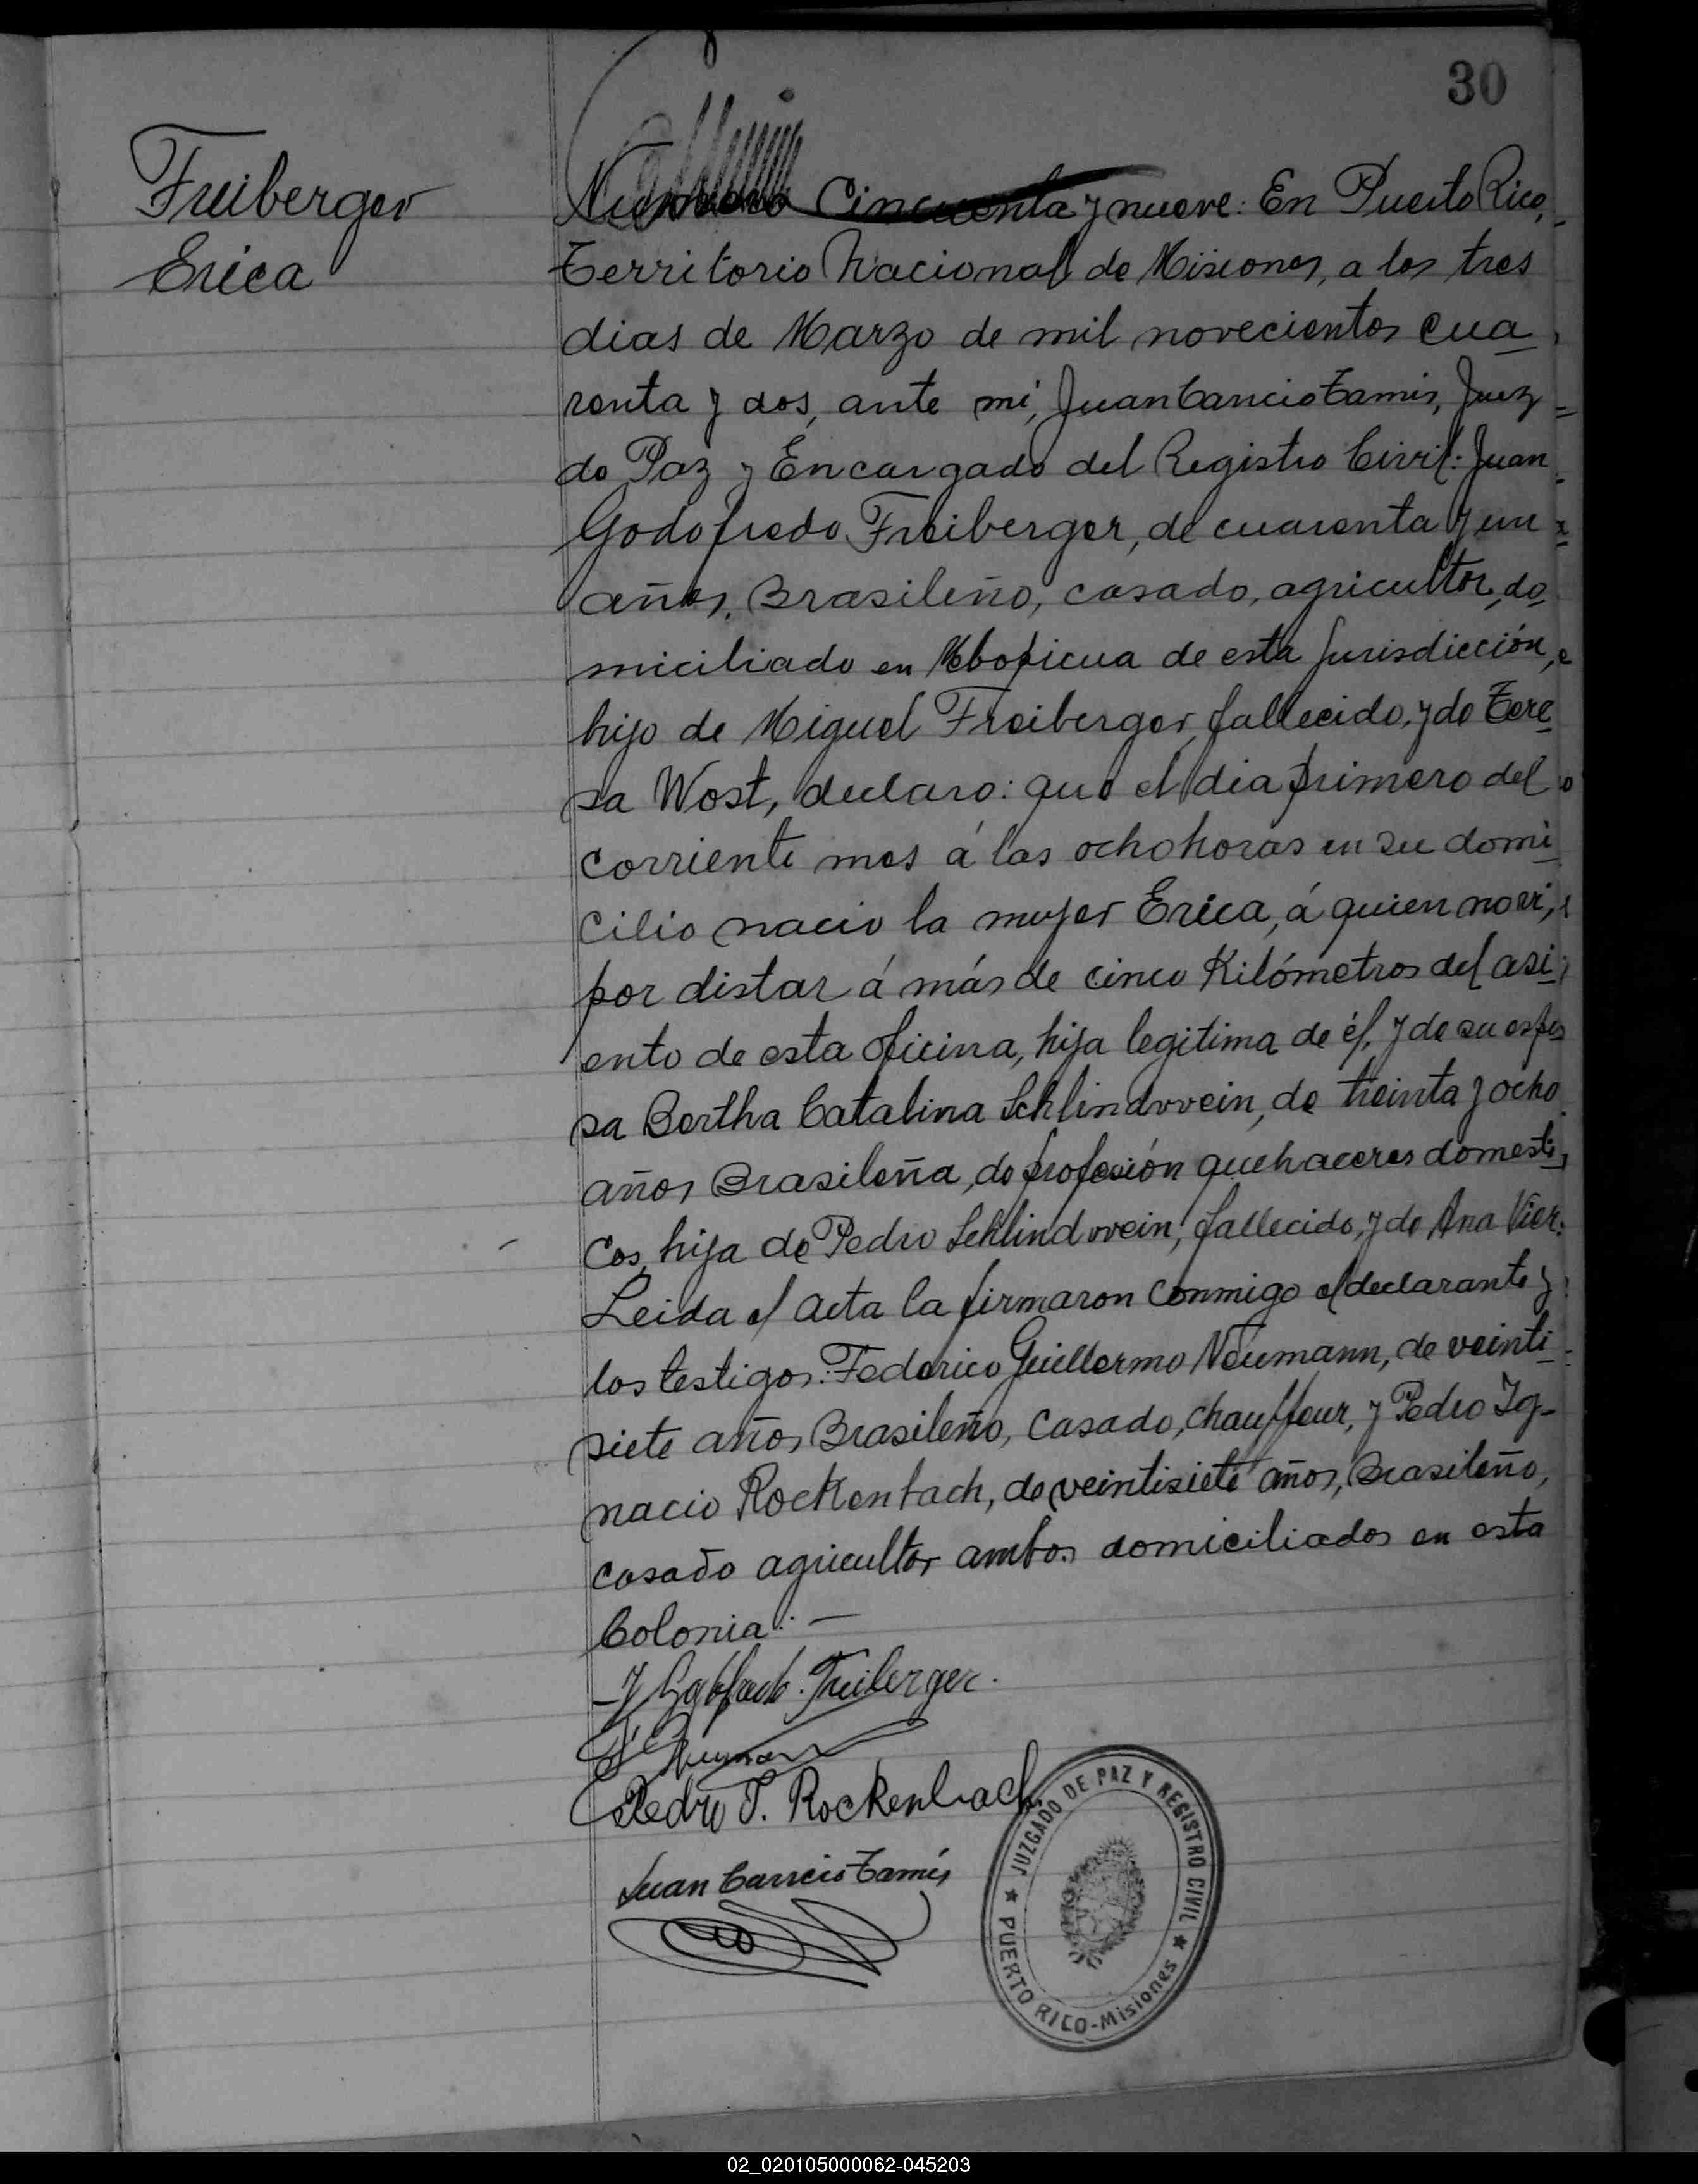 30
Freiberger
Erica
Numero Cincuenta y nueve: En Puerto Rico,
Territorio Nacional de Misiones, a los tres
dias de Marzo de mil novecientos cua
renta y dos, ante mi, Juan Cancio Tamis, Juez
de Paz y Encargado del Registro Civil: Juan
Godofredo Freiberger, de cuarenta y un
años, Brasileño, casado, agricultor, do
miciliado en Mbopicua de esta Jurisdicción,
hijo de Miguel Freiberger, fallecido, y de Tere
sa Wost, declaro: que el dia primero del
corriente mes á las ocho horas en su domi
cilio nacio la mujer Erica, á quien no vi,
por distar á más de cinco Kilómetros del asi
ento de esta oficina, hija legitima de él, y de su espo
sa Bertha Catalina Schlindwein, de treinta y ocho
años Brasileña, de profesión quehaceres domesti
cos, hija de Pedro Schlindwein, fallecido, y de Ana Vier.
Leida el acta la firmaron conmigo el declarante y
los testigos: Federico Guillermo Neumann, de veinti
siete años, Brasileño, casado, chauffeur, y Pedro Ig-
nacio Rockenbach, de veintisiete años, Brasileño,
casado agricultor ambos domiciliados en esta
Colonia: —
Freiberger.
Pedro I. Rockenbach
Juan Cancio Tamis
JUZGADO DE PAZ Y REGISTRO CIVIL
PUERTO RICO-Misiones
02_020105000062-045203